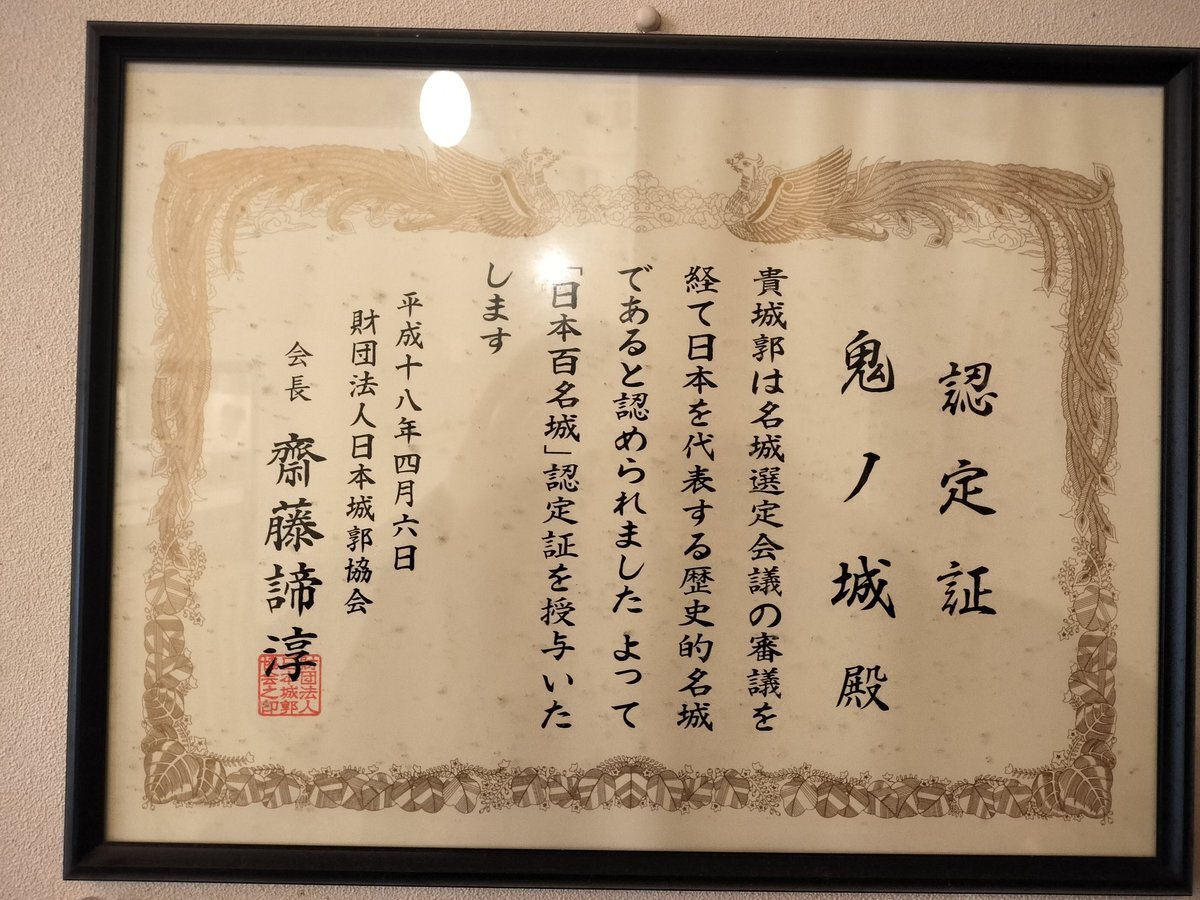 認定証
鬼ノ城殿
貴城郭は名城選定会議の審議を
経て日本を代表する歴史的名城
であると認められました よって
「日本百名城」認定証を授与いた
します
平成十八年四月六日
財団法人日本城郭協会
会長 齋藤諦淳
財団法人
日本城郭
協会之印